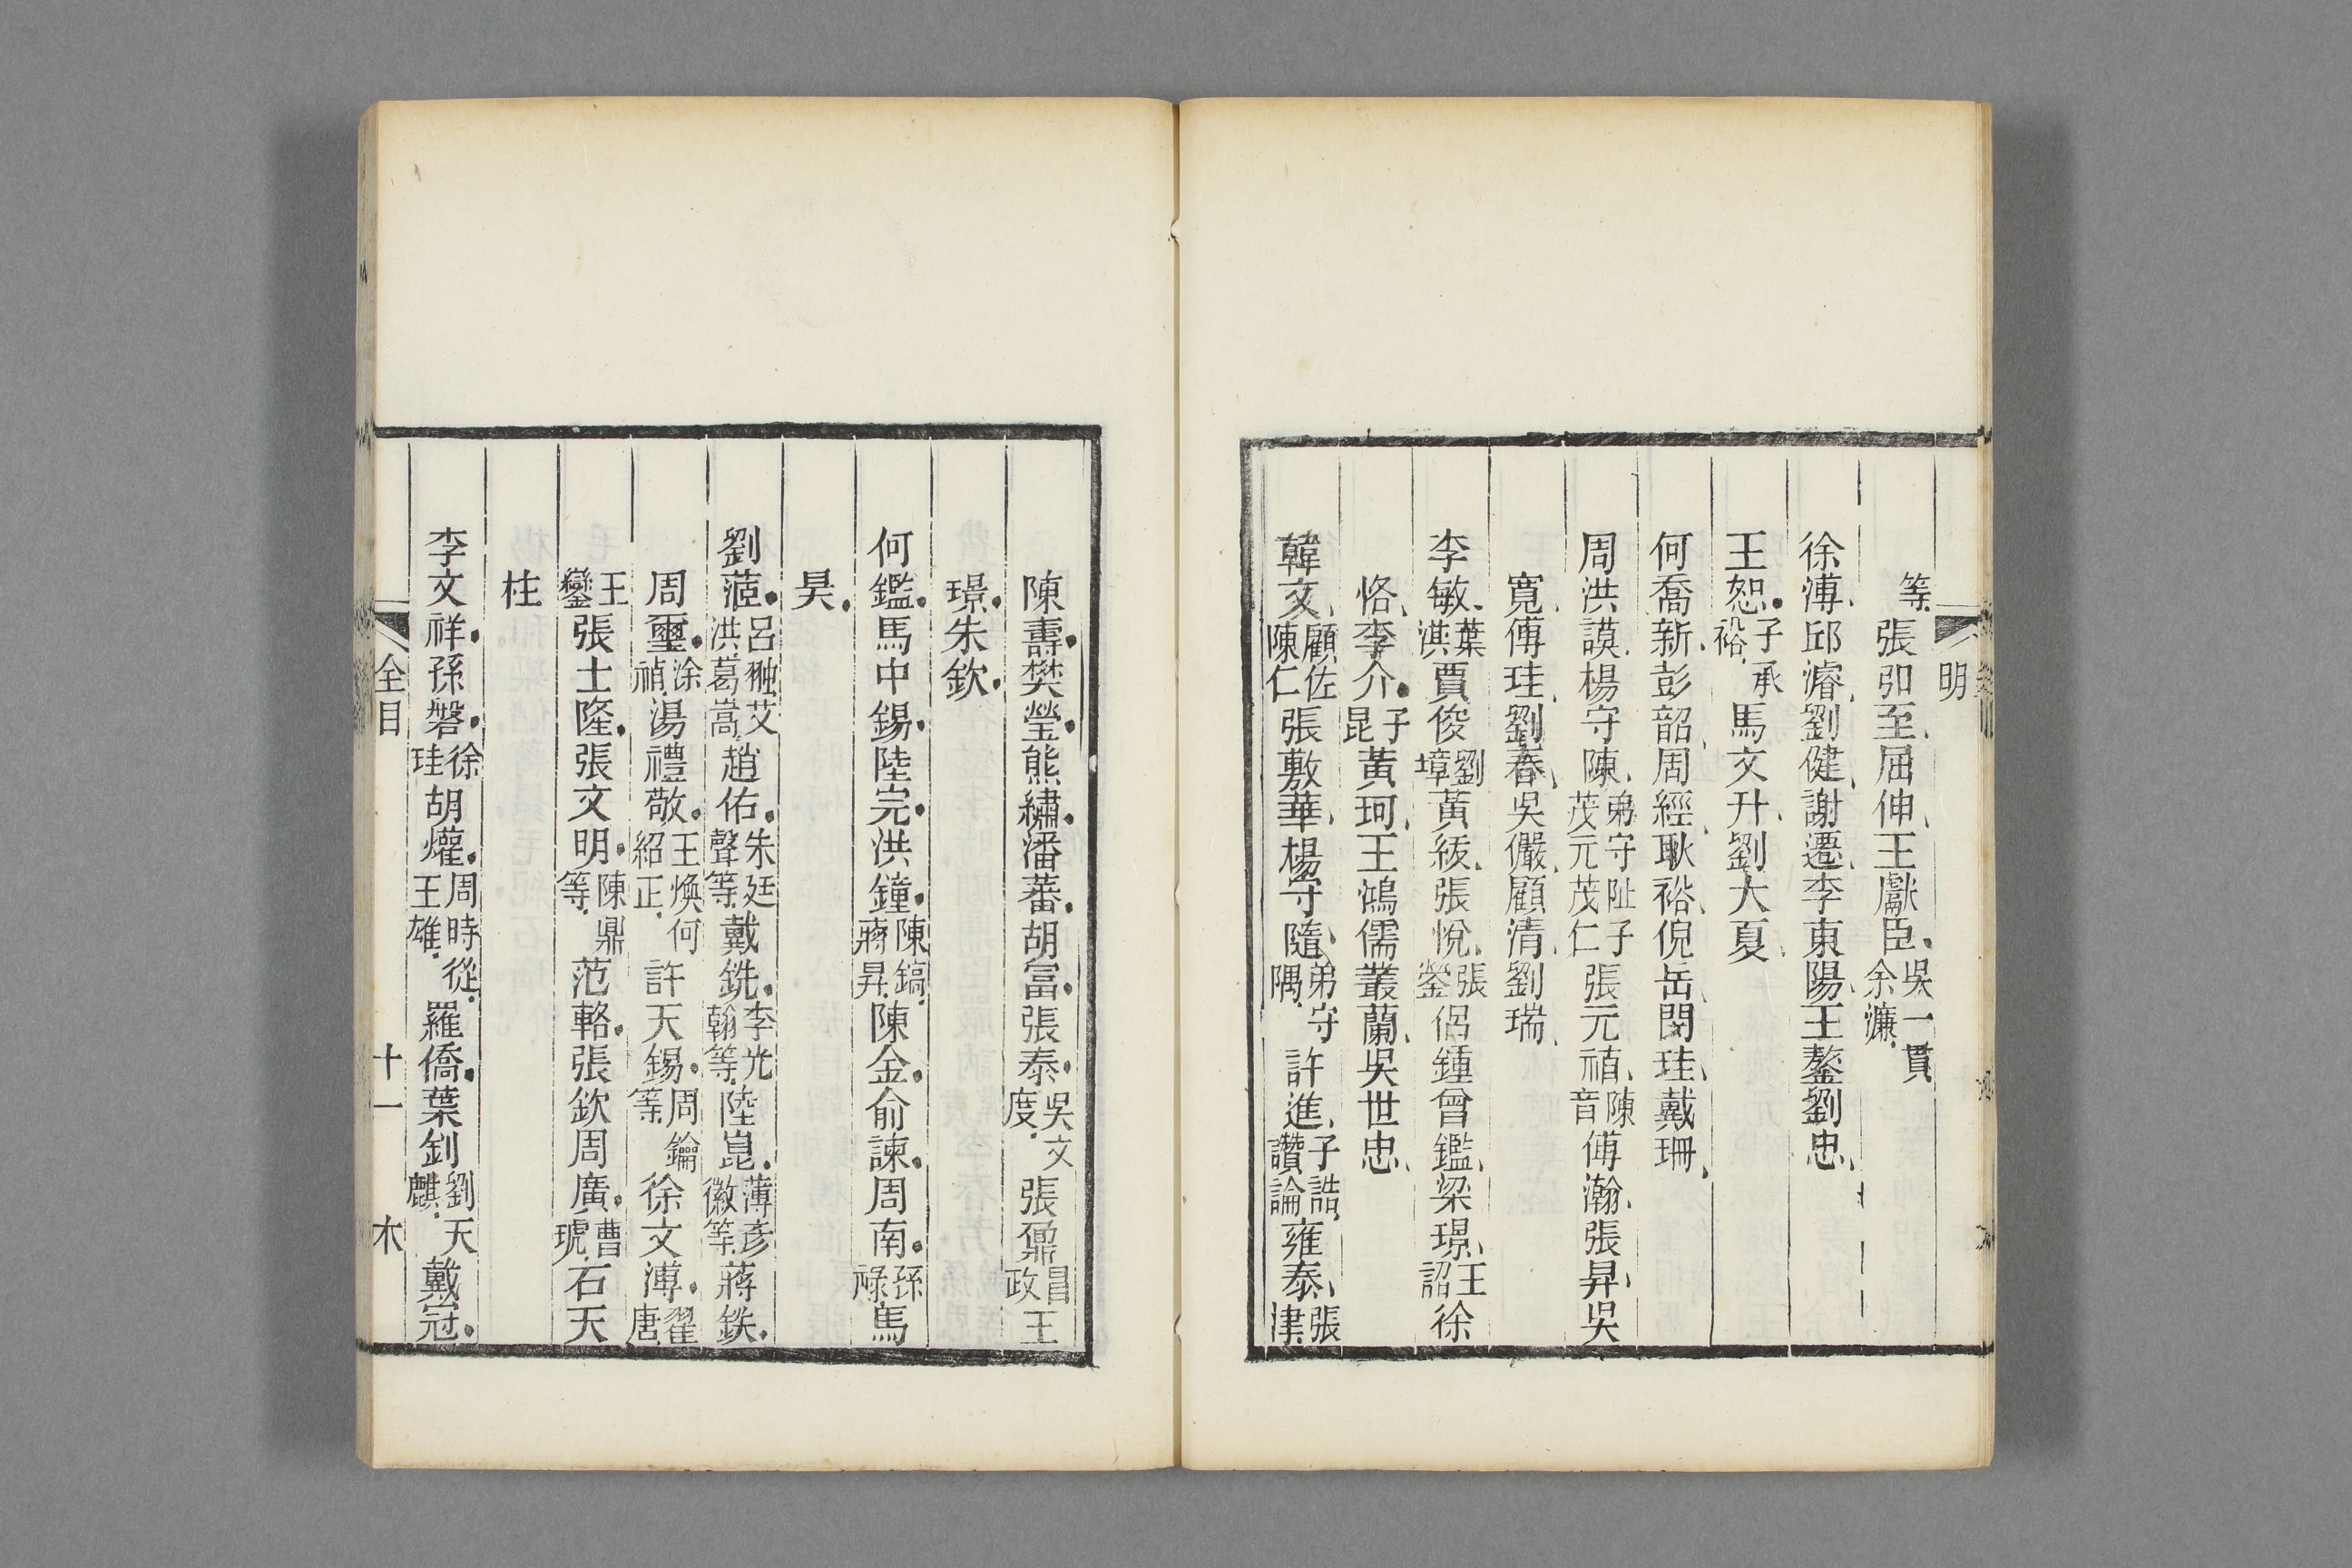 明
等張卲至屈伸王獻臣吳一貫余濂
徐溥邱濬劉健謝遷李東陽王鏊劉忠
王恕子承裕馬文升劉大夏
何喬新彭韶周經耿裕倪岳閔珪戴珊
周洪謨楊守陳弟守阯子茂元茂仁張元禎陳音傅瀚張昇吳
寬傅珪劉春吳儼顧清劉瑞
李敏葉淇賈俊劉璋黃紱張悅張鎣侶鍾曾鑑梁璟王詔徐
恪李介子昆黃珂王鴻儒叢蘭吳世忠
韓文顧佐陳仁張敷華楊守隨弟守隅許進子誥讚論雍泰張津
陳壽樊瑩熊繡潘蕃胡富張泰吳文度張鼐冒政王
璟朱欽
何鑑馬中錫陸完洪鐘陳鎬蔣昇陳金俞諫周南孫祿馬
昊
劉菃呂翀艾洪葛嵩趙佑朱廷聲等戴銑李光翰等陸崑薄彥徽等蔣欽
周璽涂禎湯禮敬王渙何紹正許天錫周鑰等徐文溥翟唐
王鑾張士隆張文明陳鼎等范輅張欽周廣曹琥石天
柱
李文祥孫磐徐珪胡爟周時從王雄羅僑葉釗劉天麒戴冠
全目 十一